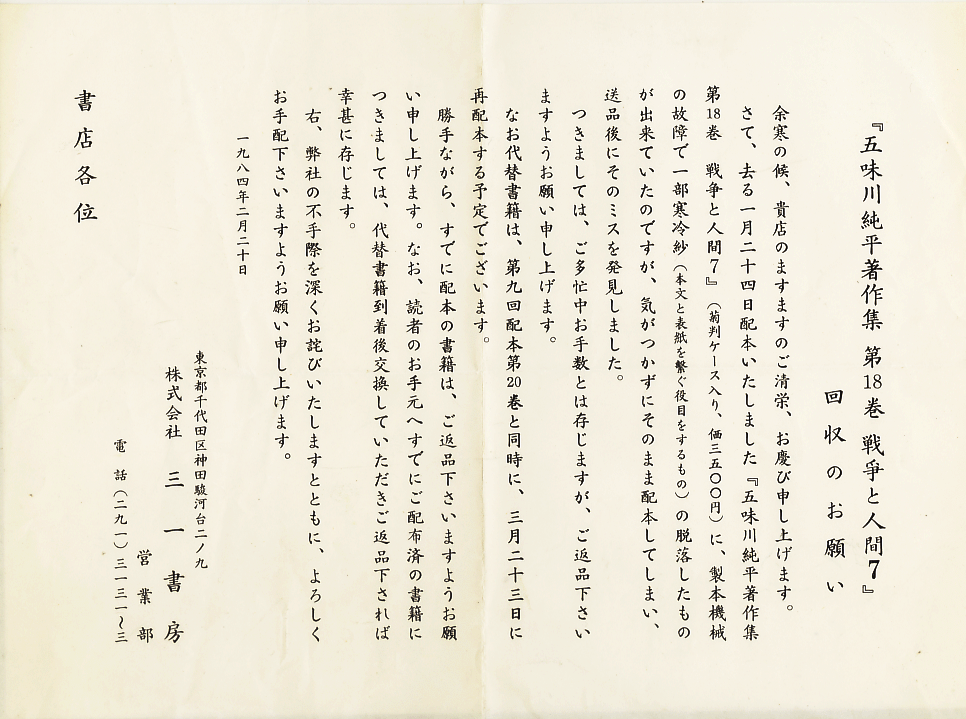 『五味川純平著作集 第18巻 戦争と人間7』
回収のお願い
余寒の候、貴店のますますのご清栄、お慶び申し上げます。
さて、去る一月二十四日配本いたしました『五味川純平著作集
第18巻 戦争と人間7』(菊判ケース入り、価三五〇〇円)に、製本機械
の故障で一部寒冷紗(本文と表紙を繋ぐ役目をするもの)の脱落したもの
が出来ていたのですが、気がつかずにそのまま配本してしまい、
送品後にそのミスを発見しました。
つきましては、ご多忙中お手数とは存じますが、ご返品下さい
ますようお願い申し上げます。
なお代替書籍は、第九回配本第20巻と同時に、三月二十三日に
再配本する予定でございます。
勝手ながら、すでに配本の書籍は、ご返品下さいますようお願
い申し上げます。なお、読者のお手元へすでにご配布済の書籍に
つきましては、代替書籍到着後交換していただきご返品下されば
幸甚に存じます。
右、弊社の不手際を深くお詫びいたしますとともに、よろしく
お手配下さいますようお願い申し上げます。
一九八四年二月二十日
東京都千代田区神田駿河台二ノ九
株式会社 三一書房
営業部
電話(二九一)三一三一〜三
書店各位